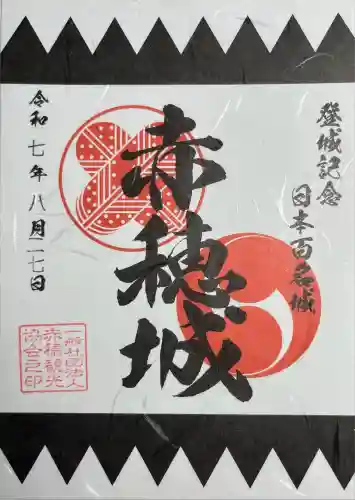 登城記念
日本百名城
赤穂城
令和七年八月二七日
一般社団法人
赤穂観光
協会之印